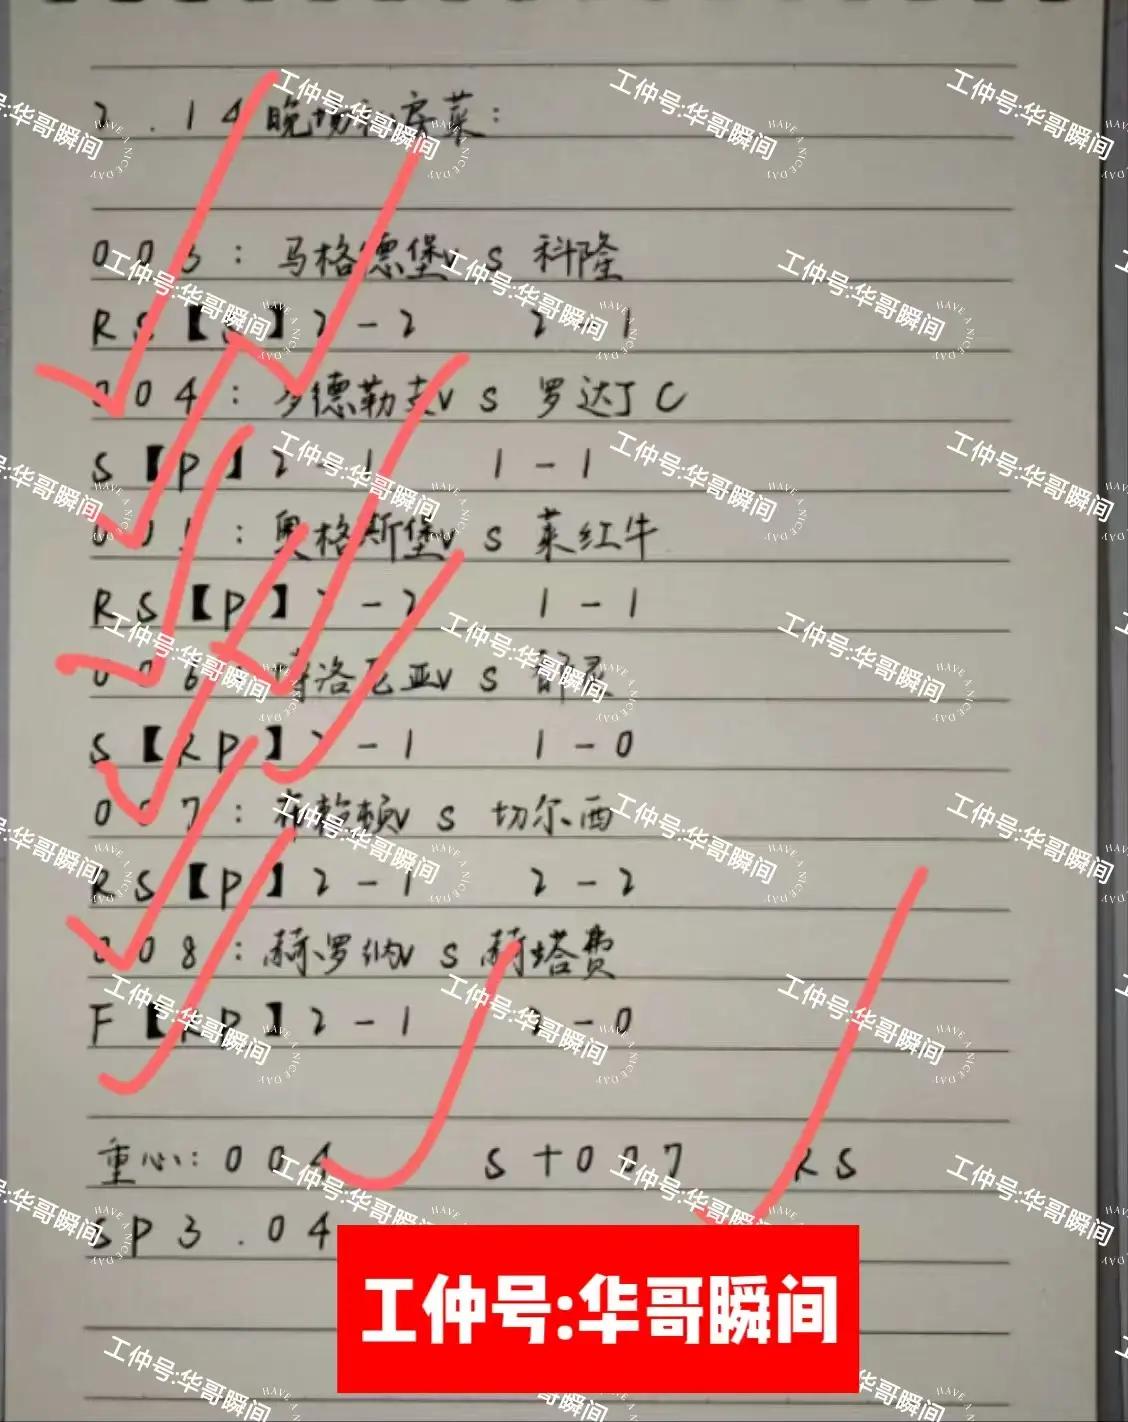 2.14晚场私房菜:
003:马格德堡vs科隆
RS【P】2-2 2-1
004:多德勒支vs罗达JC
S【P】2-1 1-1
005:奥格斯堡vs莱红牛
RS【P】2-2 1-1
006:博洛尼亚vs都灵
S【RP】2-1 1-0
007:布赖顿vs切尔西
RS【P】2-1 2-2
008:赫罗纳vs赫塔费
F【RP】2-1 2-0
重心:004 S+007 RS
SP3.04
工仲号:华哥瞬间
HAVE A NICE DAY